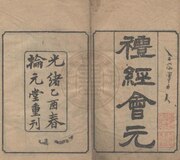 禮經會元
光緒乙酉春
掄元堂重刊